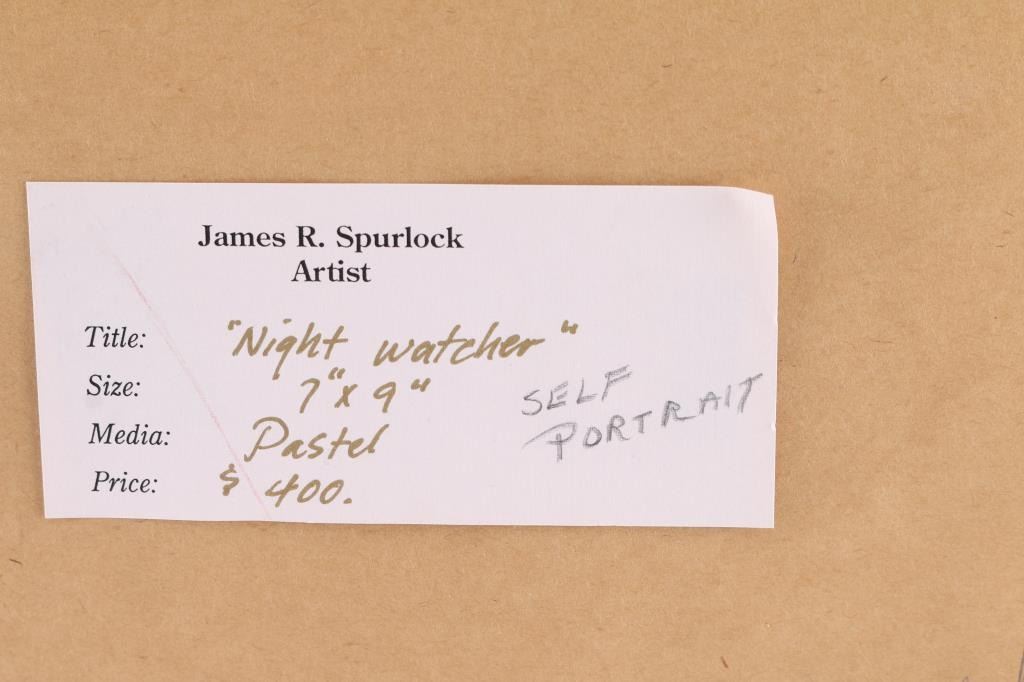 James R. Spurlock
Artist
Title: "Night watcher"
Size: 7" x 9"
Media: Pastel
Price: $ 400.
SELF
PORTRAIT